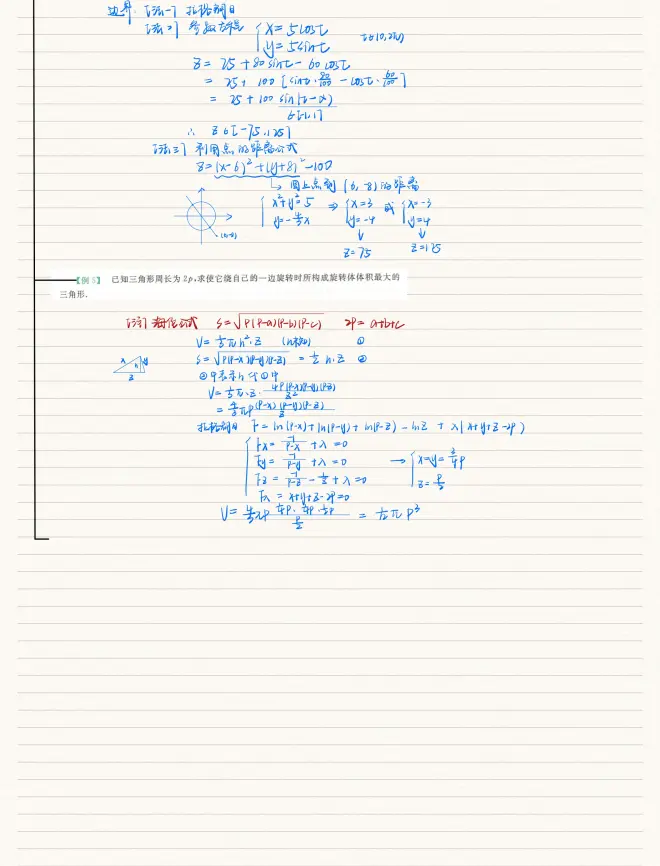 边界. [法一] 拉格朗日
[法二] 参数方程 { x = 5cost
y = 5sint t∈(0,2π)
z = 25 + 80sint - 60cost
= 25 + 100 [sint·80/100 - cost·60/100]
= 25 + 100 sin(t-α)
∈[-1,1]
∴ z∈[-75,125]
[法三] 利用点的距离公式
z = (x-6)²+(y+8)²-100
↳ 圆上点到 (6,-8) 的距离
{ x²+y²=5 ⇒ { x=3 或 { x=-3
y=-4/3x y=-4 y=4
↓ ↓
z=75 z=125
【例5】 已知三角形周长为 2p,求使它绕自己的一边旋转时所构成旋转体体积最大的
三角形.
[注] 海伦公式 S=√P(P-a)(P-b)(P-c) 2P=a+b+c
V = 1/3πh²·z ①
S = √P(P-x)(P-y)(P-z) = 1/2 h·z ②
②中表示h代①中
V = 1/3π·z· 4P(P-x)(P-y)(P-z)/z²
= 4/3πP (P-x)(P-y)(P-z)/z
拉格朗日 F = ln(P-x)+ln(P-y)+ln(P-z)-lnz + λ(x+y+z-2P)
{ Fx = -1/P-x + λ = 0
Fy = -1/P-y + λ = 0 → { x=y=3/4P
Fz = -1/P-z - 1/z + λ = 0 z=P/2
Fλ = x+y+z-2P=0
= 1/12 π P³